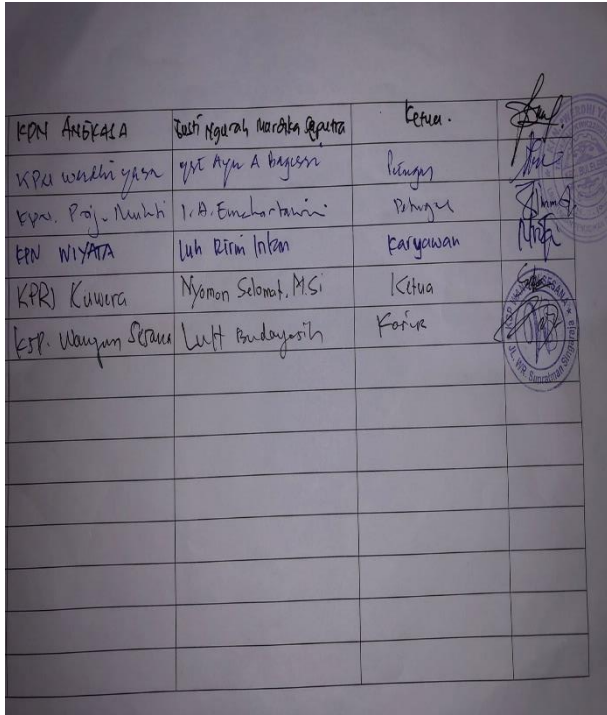 KPN ANGKASA Gusti Ngurah Mardika Saputra Ketua.
KPN Werdhi Yasa Gst Ayu A Bagussi Petugas
KPN. Praj. Mukti I. A. Petugas
KPN WIYATA Luh Ririn Intan Karyawan
KPRI Kuwera Nyoman Selamat, M.Si Ketua
KSP. Wangun Sesana Luh Budayasih Kasir
JL. WR. Supratman Singaraja